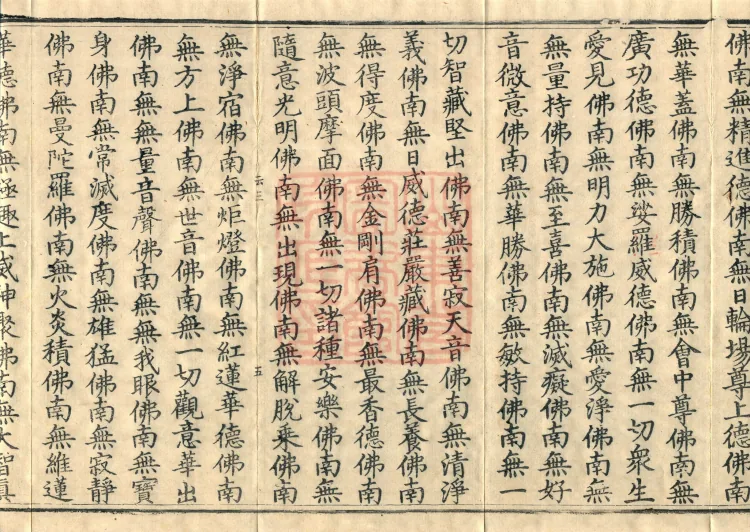 佛南無精進德佛南無日輪場尊上德佛南
無華蓋佛南無勝積佛南無會中尊佛南無
廣功德佛南無娑羅威德佛南無一切衆生
愛見佛南無明力大施佛南無愛淨佛南無
無量持佛南無至喜佛南無滅癡佛南無好
音微意佛南無華勝佛南無敏持佛南無一
切智藏堅出佛南無善寂天音佛南無清淨
義佛南無日威德莊嚴藏佛南無長養佛南
無得度佛南無金剛肩佛南無最香德佛南
無波頭摩面佛南無一切諸種安樂佛南無
隨意光明佛南無出現佛南無解脫乘佛南
云三
五
無淨宿佛南無炬燈佛南無紅蓮華德佛南
無方上佛南無世音佛南無一切觀意華出
佛南無無量音聲佛南無無我眼佛南無寶
身佛南無常滅度佛南無雄猛佛南無寂靜
佛南無曼陀羅佛南無火炎積佛南無維蓮
華德佛南無極趣上威神聚佛南無大智真